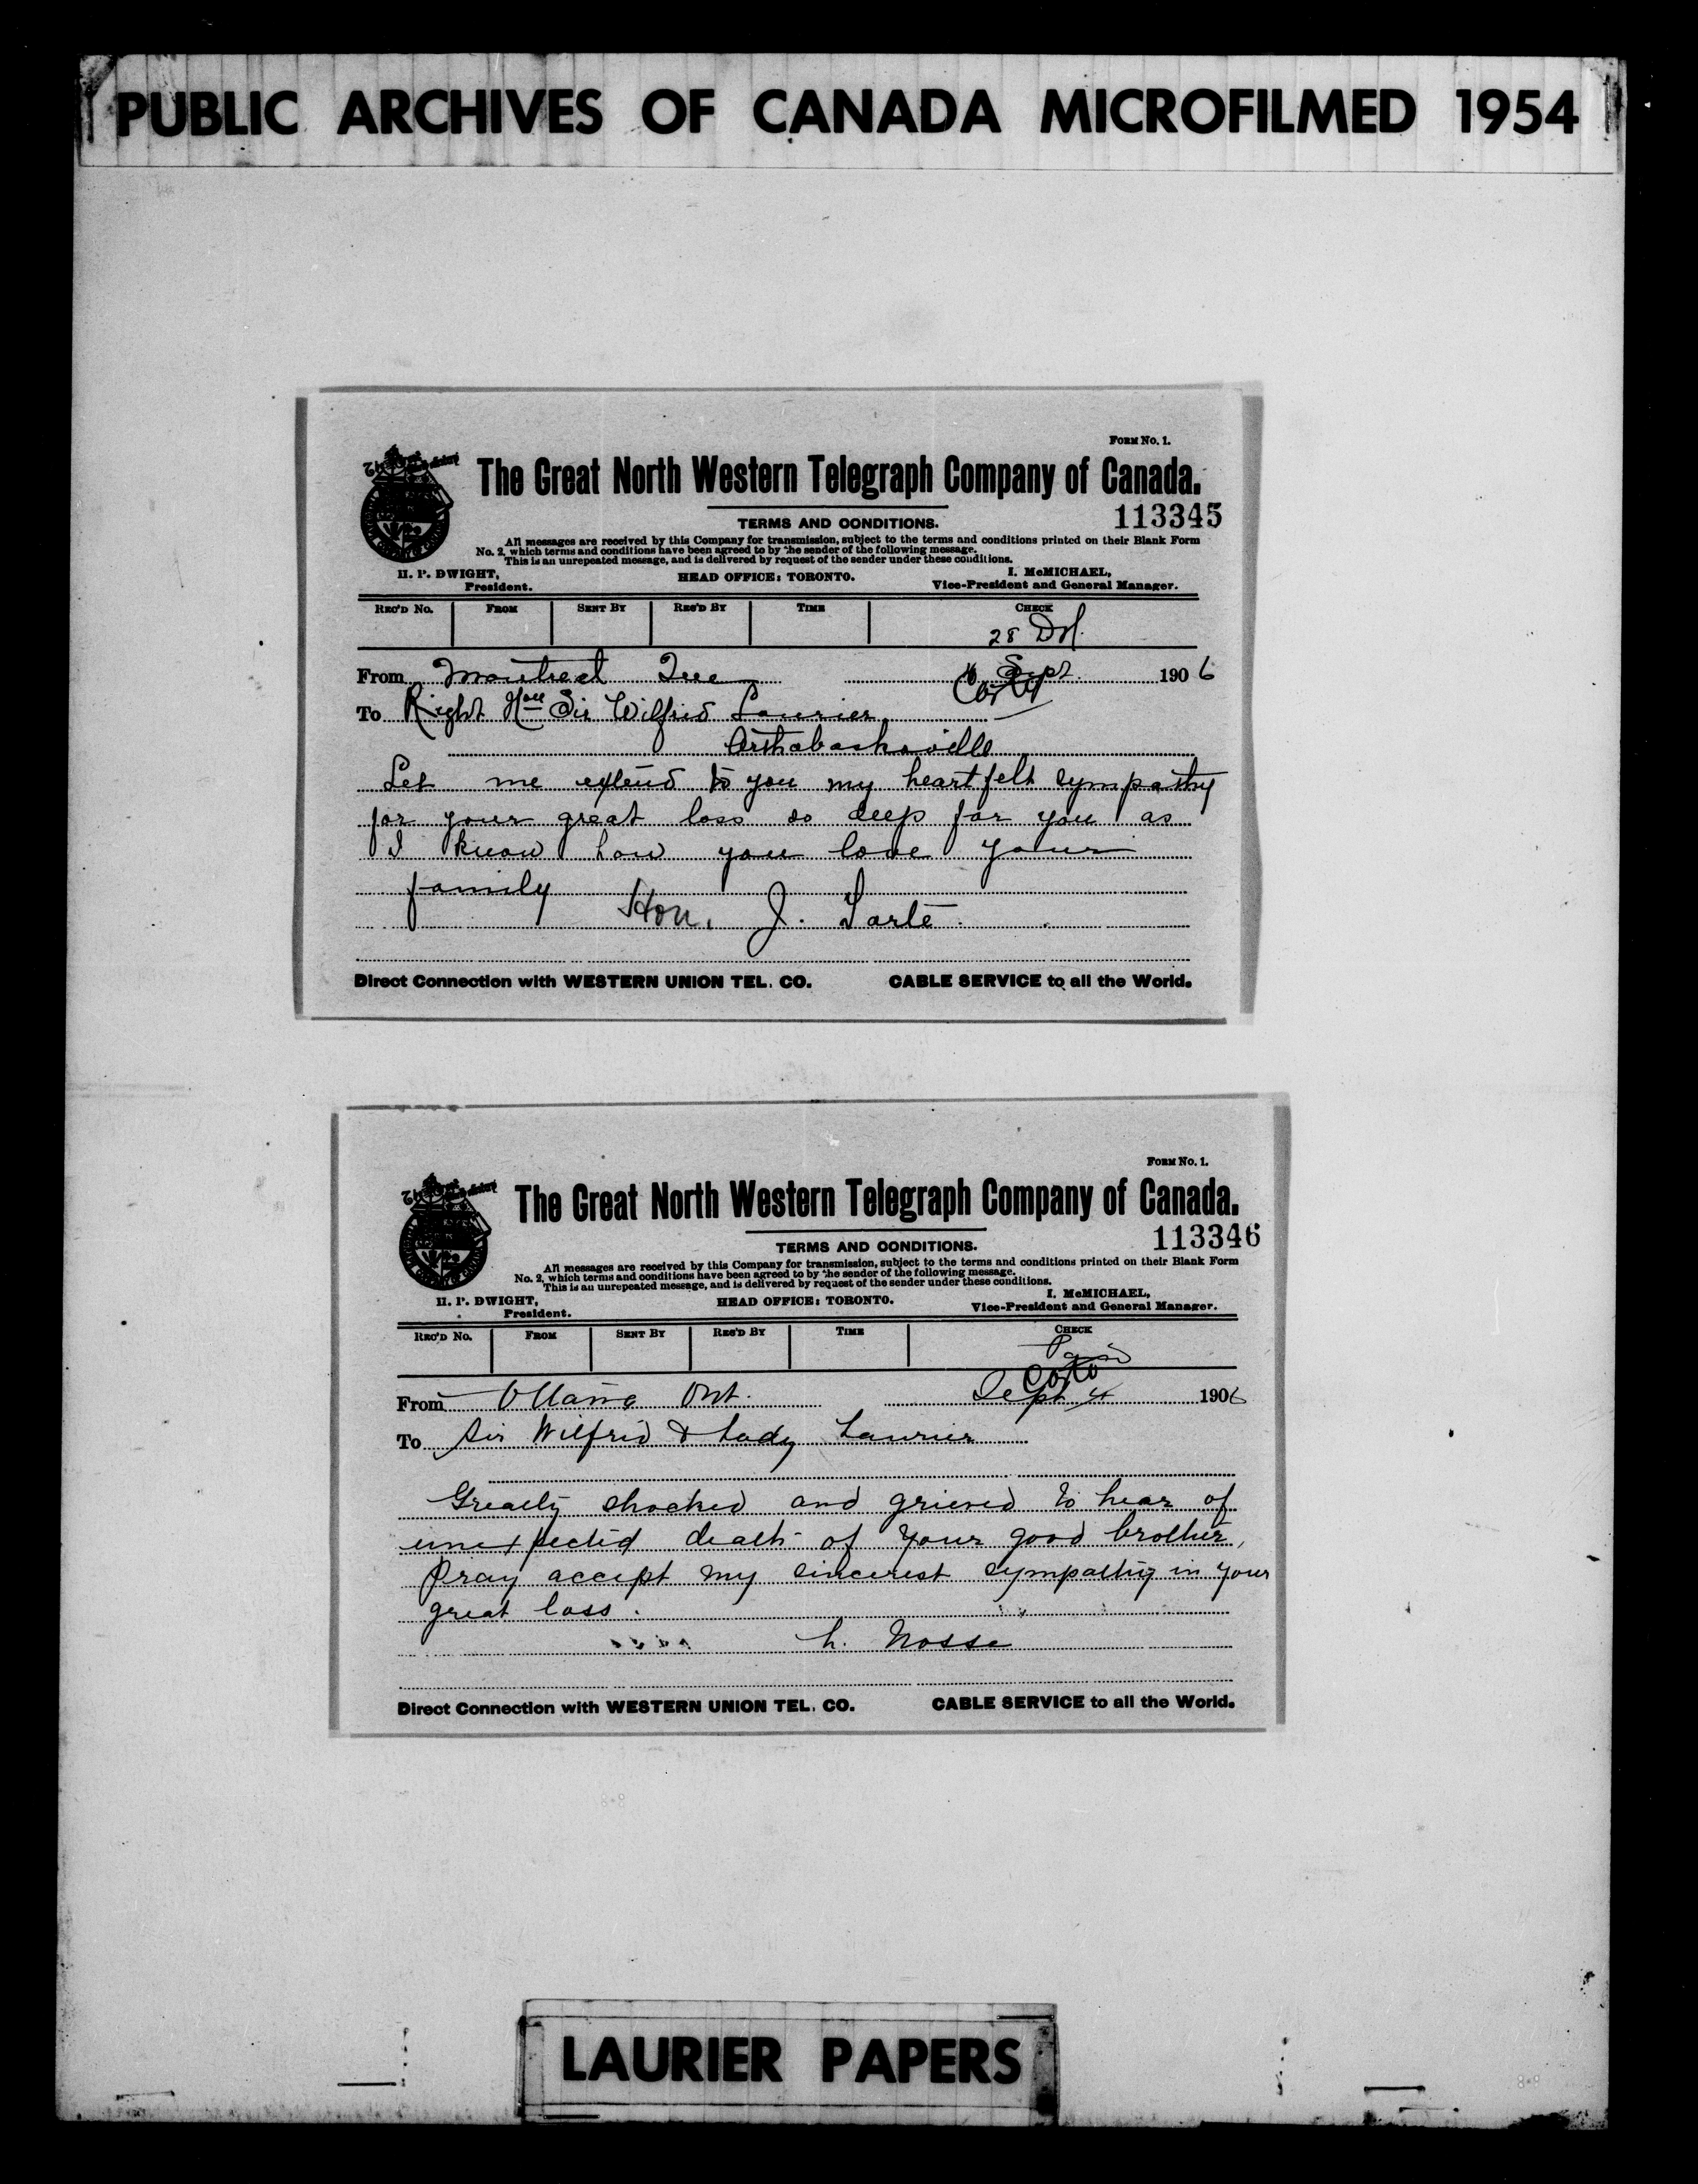 PUBLIC ARCHIVES OF CANADA MICROFILMED 1954
FORM No. 1.
The Great North Western Telegraph Company of Canada.
113345
TERMS AND CONDITIONS.
All messages are received by this Company for transmission, subject to the terms and conditions printed on their Blank Form
No. 2, which terms and conditions have been agreed to by the sender of the following message.
This is an unrepeated message, and is delivered by request of the sender under these conditions.
H. P. DWIGHT, President.
HEAD OFFICE: TORONTO.
I. McMICHAEL, Vice-President and General Manager.
REC'D No. FROM SENT BY REC'D BY TIME CHECK
28 DH.
From Montreal Que 4 Sept. 1906
To Right Hon Sir Wilfrid Laurier
Arthabaskaville
Let me extend to you my heartfelt sympathy
for your great loss so deep for you as
I know how you love your
family
Hon. J. Tarte
Direct Connection with WESTERN UNION TEL. CO. CABLE SERVICE to all the World.
FORM No. 1.
The Great North Western Telegraph Company of Canada.
113346
TERMS AND CONDITIONS.
All messages are received by this Company for transmission, subject to the terms and conditions printed on their Blank Form
No. 2, which terms and conditions have been agreed to by the sender of the following message.
This is an unrepeated message, and is delivered by request of the sender under these conditions.
H. P. DWIGHT, President.
HEAD OFFICE: TORONTO.
I. McMICHAEL, Vice-President and General Manager.
REC'D No. FROM SENT BY REC'D BY TIME CHECK
Paid
From Ottawa Ont. Sept 4 1906
To Sir Wilfrid & Lady Laurier
Greatly shocked and grieved to hear of
unexpected death of your good brother,
Pray accept my sincerest sympathy in your
great loss.
h. Nosse
Direct Connection with WESTERN UNION TEL. CO. CABLE SERVICE to all the World.
LAURIER PAPERS